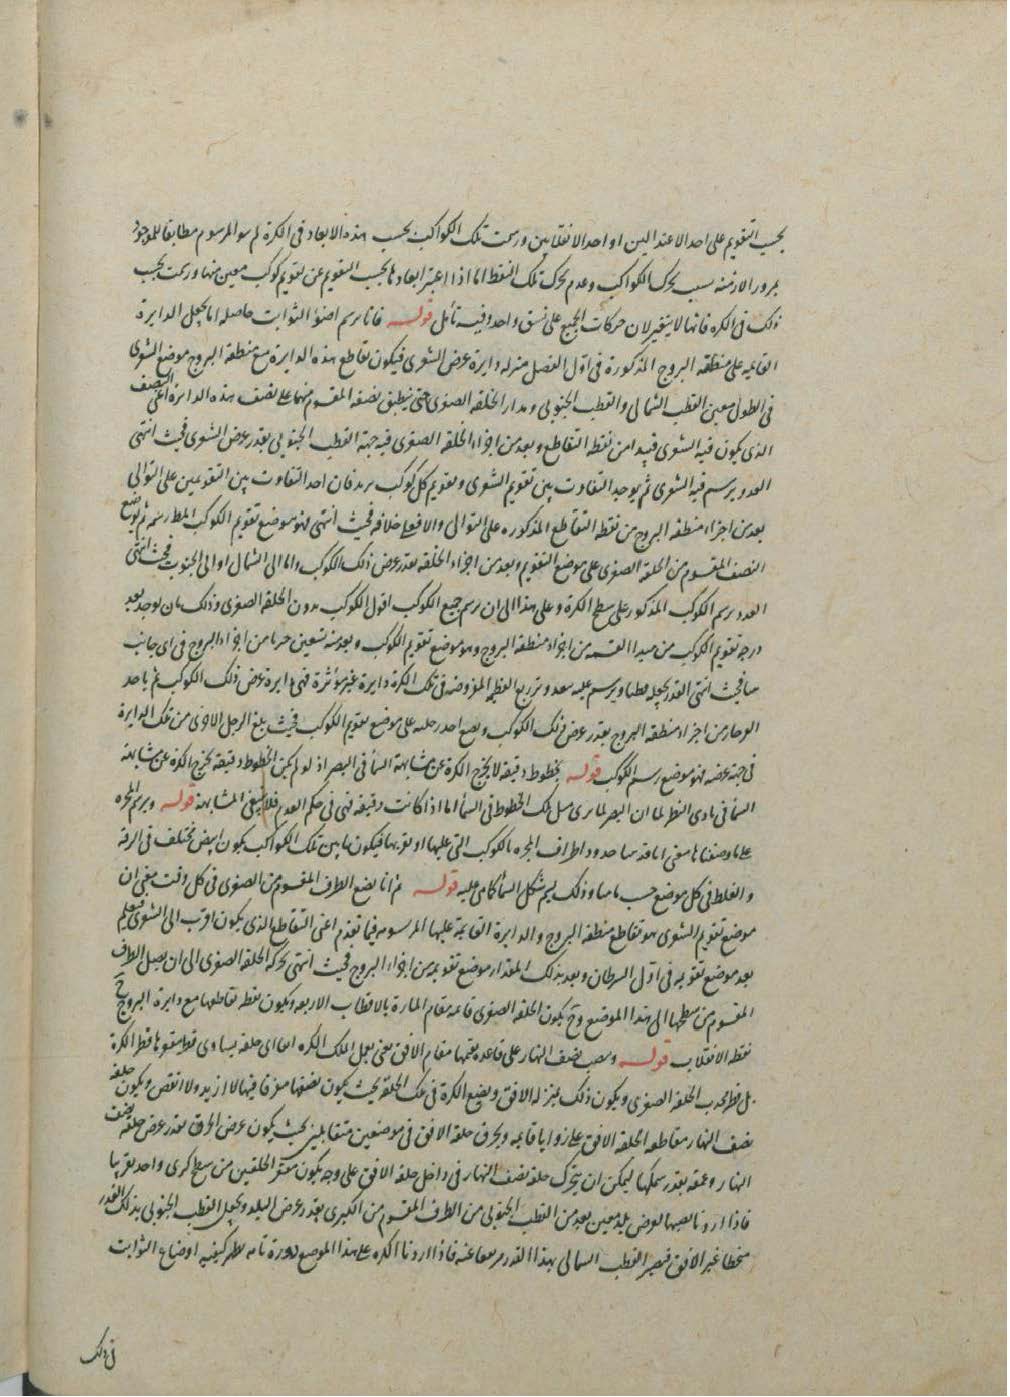 بحسب التقويم على احد الاعتدالين او احد الانقلابين ورسمت تلك الكواكب بحسب هذه الابعاد فى الكرة لم يبق المرسوم مطابقا للموجود
بمرور الازمنه بسبب تحرك الكواكب وعدم تحرك تلك النقط اما اذا اعتبر ابعادها بحسب التقويم عن تقويم كوكب معين منها ورسمت بحسب
ذلك فى الكره فانها لا يتغير لان حركات الجميع على نسق واحد وفيه تأمل قوله فانا نرسم اضوأ الثوابت حاصله انا نجعل الدايرة
القايمه على منطقه البروج المذكورة فى اول الفصل منزله دايرة عرض الشعرى فيكون تقاطع هذه الدايرة مع منطقة البروج موضع الشعرى
فى الطول معين القطب الشمالى والقطب الجنوبى ومدار الحلقه الصغرى حتى ينطبق نصفه المقسوم منهما على نصف هذه الدايرة اعنى النصف
الذى يكون فيه الشعرى فيبدا من نقطة التقاطع وبعد من اجزاء الحلقة الصغرى فيه جهة القطب الجنوبى بقدر عرض الشعرى فحيث انتهى
العدد يرسم فيه الشعرى ثم يوجد التفاوت بين تقويم الشعرى وتقويم كل كوكب يريد فان احد التفاوت بين التقويمين على التوالى
بعد من اجزاء منطقة البروج من نقطة التقاطع المذكوره على التوالى والا فعلى خلافه فحيث انتهى فهو موضع تقويم الكوكب المط رسمه ثم يوضع
النصف المقسوم من الحلقة الصغرى على موضع التقويم وبعد من اجزاء الحلقه بقدر عرض ذلك الكوكب واما الى الشمال او الى الجنوب فحيث انتهى
العدد يرسم الكوكب المذكور على سطح الكرة وعلى هذا الى ان يرسم جميع الكواكب اقول الكوكب بدون الحلقه الصغرى وذلك بان يوجد بعد
درجه تقويم الكوكب من مبدا القسمه من اجزاء منطقه البروج وهو موضع تقويم الكوكب وبعد منه تسعين جزءا من اجزاء البروج فى اى جانب
فحيث انتهى العدد يجعل قطبا ويرسم عليه ببعد وتر ربع العظيمه المفروضه فى تلك الكرة دايرة غير مؤثرة فهى دايرة عرض ذلك الكوكب ثم ياخذ
البرجار من اجزاء منطقه البروج بقدر عرض ذلك الكوكب ويضع احد رجليه على موضع تقويم الكوكب فحيث بلغ الرجل الاخرى من تلك الدايرة
فى جهة عرضه فهو موضع رسم الكوكب قوله بخطوط دقيقه لا يخرج الكرة عن مشابهة السمأ فى البصر اذ لو لم يكن الخطوط دقيقه يخرج الكرة عن مشابهة
السمأ فى بادى النظر لما ان البصر لما يرى مثل تلك الخطوط فى السمأ اما اذا كانت دقيقه فهى فى حكم العدم فلا ينفى المشابهة قوله ويرسم المجره
على ما وصفناها يعنى حدود اطراف المجره بالكوكب التى عليها او بقربها فيكون ما بين تلك الكواكب يكون ابيض مختلف فى الرقة
والغلظ فى كل موضع حسب وذلك ليم شكل السمأ كما هى عليه قوله ثم انا نضع الطرف المقسوم من الصغرى فى كل وقت يعنى ان
موضع تقويم الشعرى هو تقاطع منطقة البروج والدايرة القايمة عليها المرسومه فيما تقدم اعنى التقاطع الذى يكون اقرب الى الشعرى فيعلم
بعد موضع تقويمه فى اول السرطان وبعد بذلك المقدار موضع تقويمه من اجزاء البروج فحيث انتهى تحركه الحلقه الصغرى الى ان يصل الطرف
المقسوم من سطحها الى هذا الموضع وح يكون الحلقه الصغرى قايمه مقام المارة بالاقطاب الاربعه ويكون نقطه تقاطعها مع دايرة البروج ح
نقطه الانقلاب قوله ونصب نصف النهار على قاعده مقام الافق يعنى نعمل لتلك الكره حلقه يساوى قطر مقعرها قطر الكرة
بل قطر محدب الحلقه الصغرى ويكون ذلك بمنزله الافق ويضع الكرة فى تلك الحلقه بحيث يكون نصفها مغرقا فيها لا ازيد ولا انقص ويكون حلقه
نصف النهار مقاطعا لحلقه الافق على زوايا قايمه ويحرق حلقة الافق فى موضعين متقابلين بحيث يكون عرض الحرق بقدر عرض حلقه نصف
النهار وعمقه بقدر سمكها ليمكن ان يتحرك حلقه نصف النهار فى داخل حلقه الافق على وجه يكون مقعر الحلقين من سطح كرى واحد تقريبا
فاذا اردنا نصبها لعرض بلد معين بعد من القطب الجنوبى من الطرف المقسوم من الكبرى بقدر عرض البلد ويجعل القطب الجنوبى بذلك القدر
منحطا عن الافق فيصير القطب الشمالى بهذا القدر مرتفعا عنه فاذا ادرنا الكره على هذا الموضع دورة تامه يظهر كيفيه اوضاع الثوابت
فى ذلك